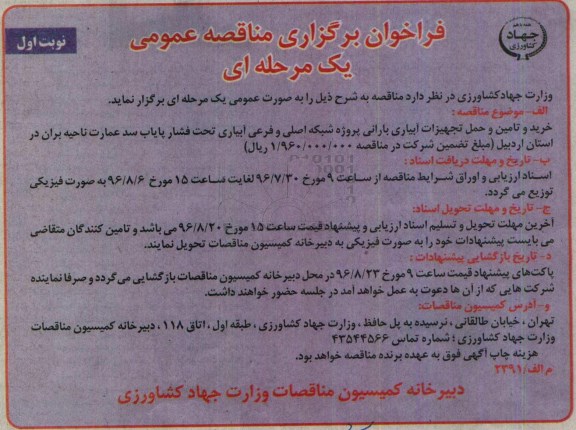 فراخوان برگزاری مناقصه عمومی
یک مرحله ای
نوبت اول
جهاد
کشاورزی
وزارت جهادکشاورزی در نظر دارد مناقصه به شرح ذیل را به صورت عمومی یک مرحله ای برگزار نماید.
الف-موضوع مناقصه :
خرید و تامین و حمل تجهیزات آبیاری بارانی پروژه شبکه اصلی و فرعی آبیاری تحت فشار پایاب سد عمارت ناحیه بران در
استان اردبیل (مبلغ تضمین شرکت در مناقصه ۱/۹۶۰/۰۰۰/۰۰۰ ریال)
ب- تاریخ و مهلت دریافت اسناد :
اسناد ارزیابی و اوراق شرایط مناقصه از ساعت ۹ مورخ ۹۶/۷/۳۰ لغایت ساعت ۱۵ مورخ ۹۶/۸/۶ به صورت فیزیکی
توزیع می گردد.
ج- تاریخ و مهلت تحویل اسناد:
آخرین مهلت تحویل و تسلیم اسناد ارزیابی و پیشنهاد قیمت ساعت ۱۵ مورخ ۹۶/۸/۲۰ می باشد و تامین کنندگان متقاضی
می بایست پیشنهادات خود را به صورت فیزیکی به دبیرخانه کمیسیون مناقصات تحویل نمایند.
د- تاریخ بازگشایی پیشنهادات :
پاکت‌های پیشنهاد قیمت ساعت ۹ مورخ ۹۶/۸/۲۳ در محل دبیرخانه کمیسیون مناقصات بازگشایی می گردد و صرفا نماینده
شرکت هایی که از آن ها دعوت به عمل خواهد آمد در جلسه حضور خواهند داشت.
و-آدرس کمیسیون مناقصات:
تهران ، خیابان طالقانی ، نرسیده به پل حافظ ، وزارت جهاد کشاورزی ، طبقه اول ، اتاق ۱۱۸ ، دبیرخانه کمیسیون مناقصات
وزارت جهاد کشاورزی ؛ شماره تماس ۴۳۵۴۴۵۶۶
هزینه چاپ آگهی فوق به عهده برنده مناقصه خواهد بود.
م الف/۲۳۹۱
دبیرخانه کمیسیون مناقصات وزارت جهاد کشاورزی